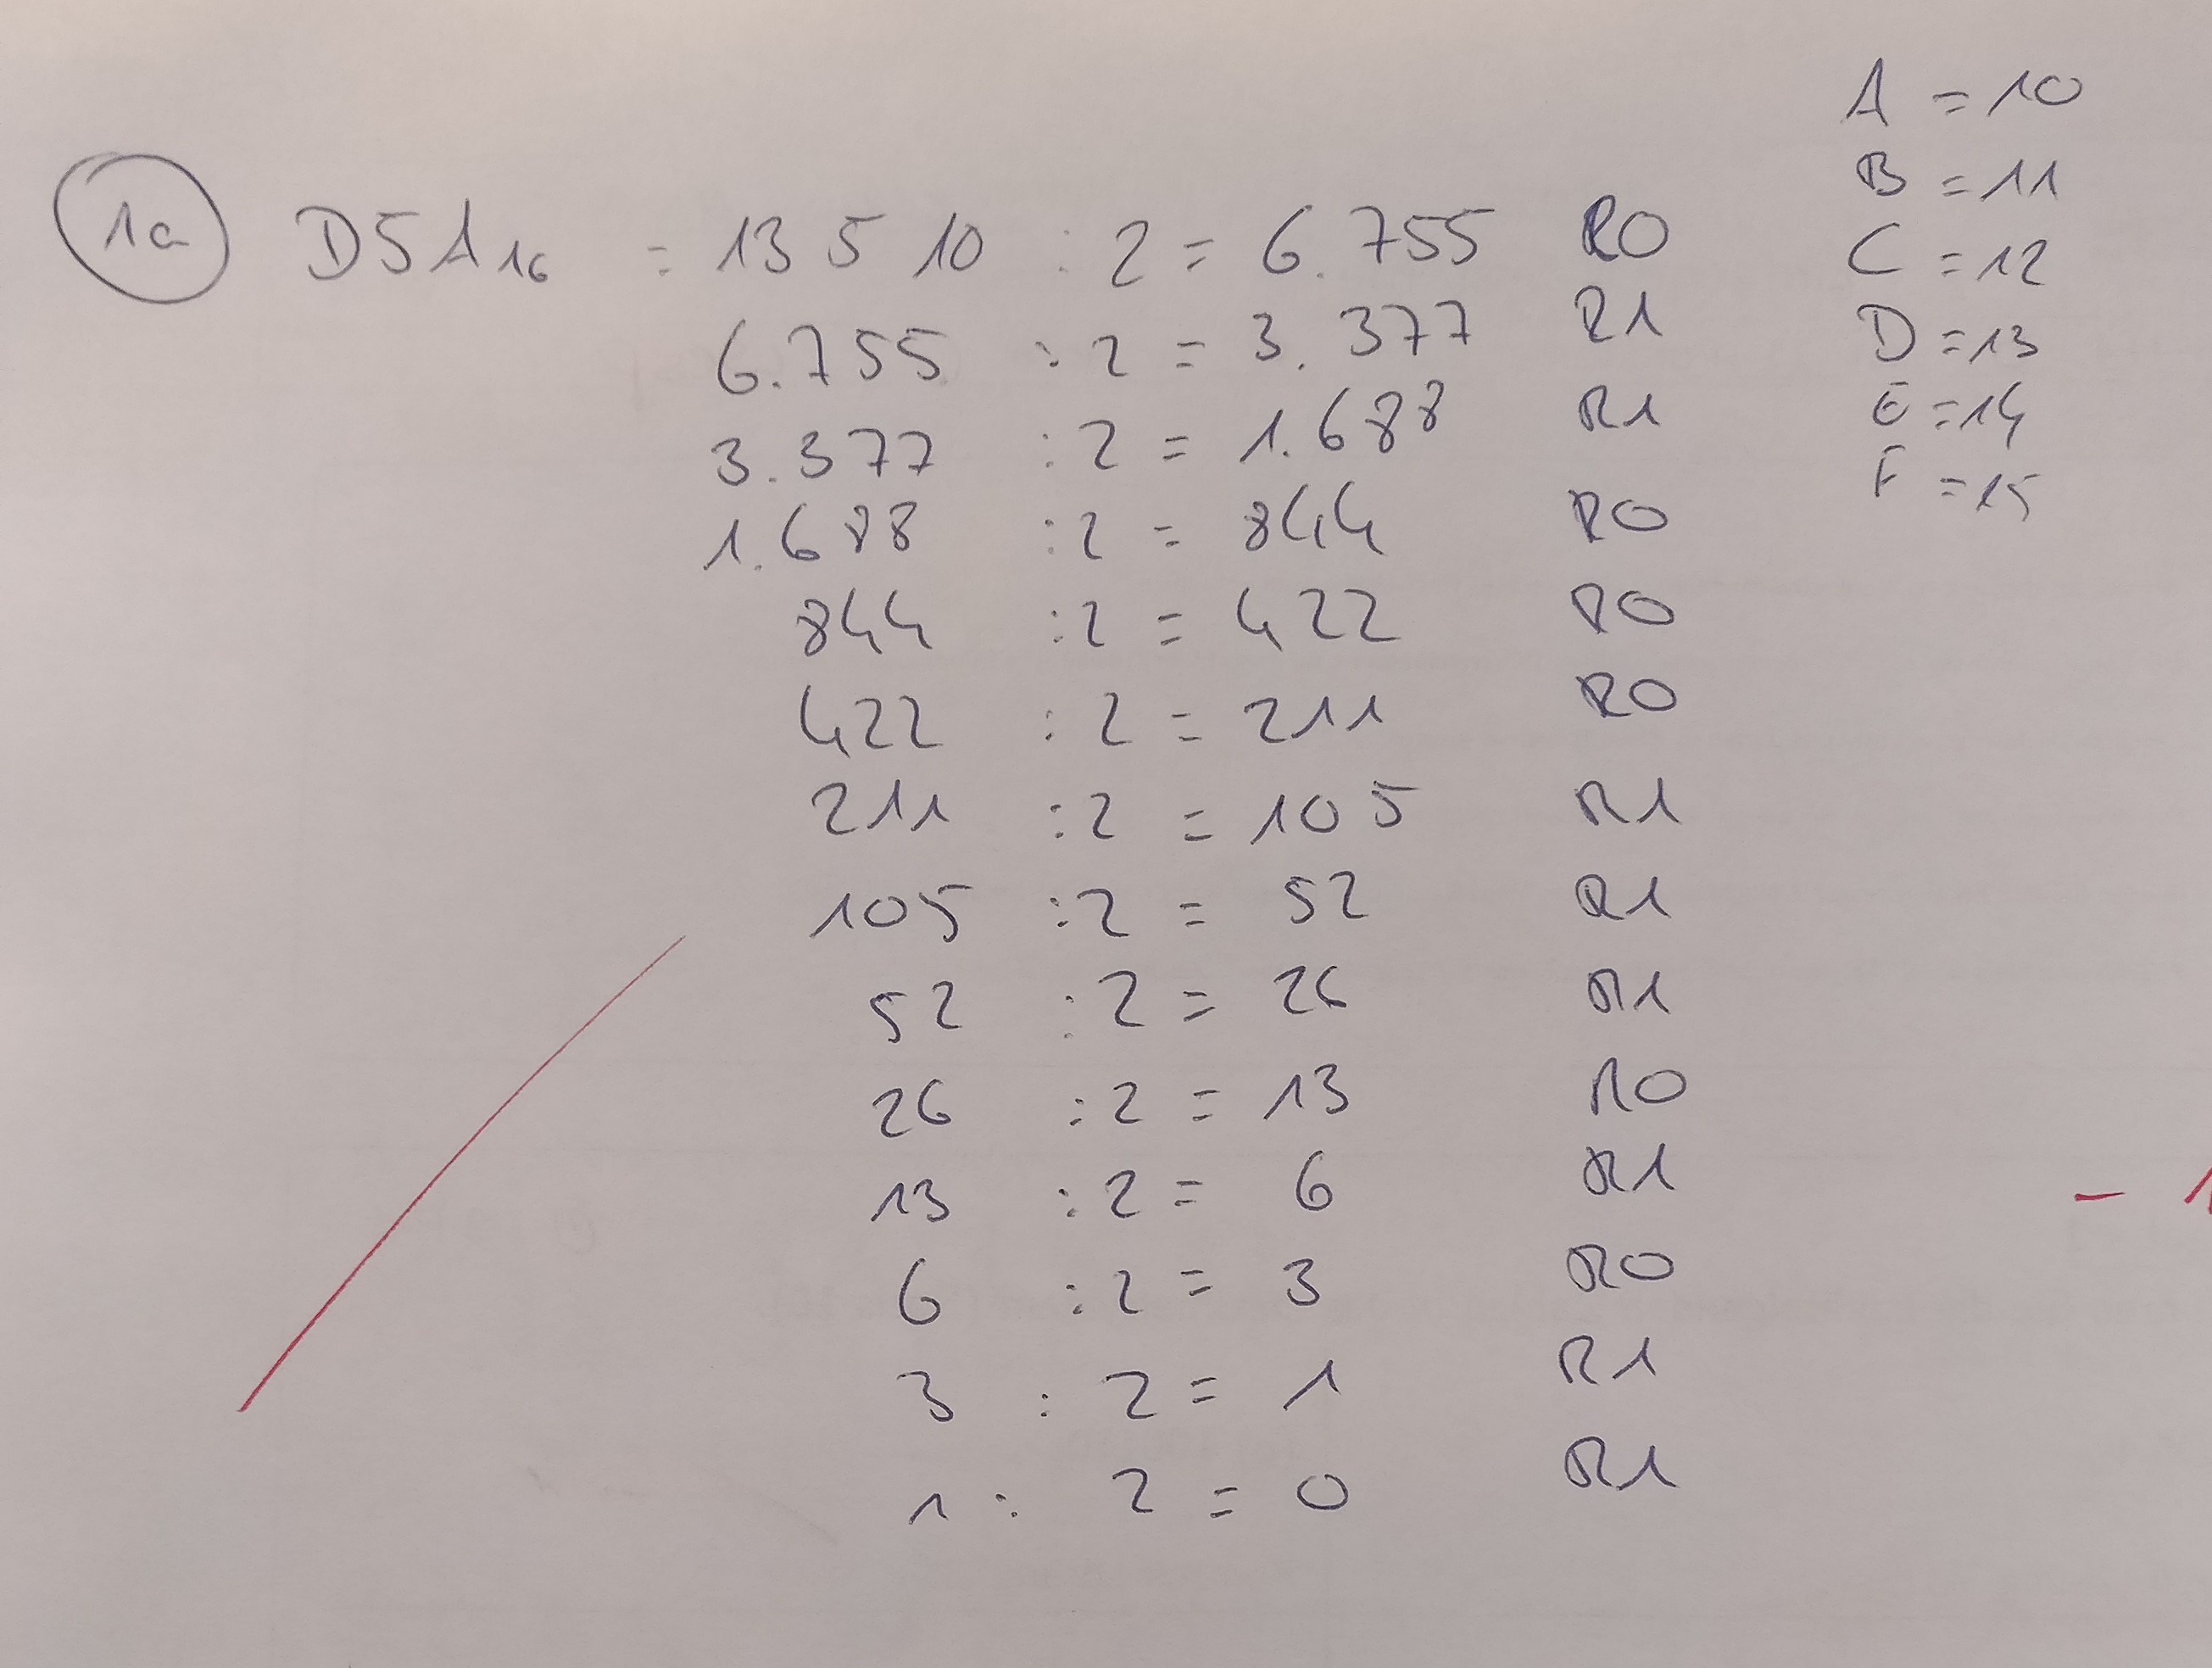 1a D5A16 = 13 5 10 : 2 = 6.755 R0
6.755 : 2 = 3.377 R1
3.377 : 2 = 1.688 R1
1.688 : 2 = 844 R0
844 : 2 = 422 R0
422 : 2 = 211 R0
211 : 2 = 105 R1
105 : 2 = 52 R1
52 : 2 = 26 R1
26 : 2 = 13 R0
13 : 2 = 6 R1
6 : 2 = 3 R0
3 : 2 = 1 R1
1 : 2 = 0 R1
A = 10
B = 11
C = 12
D = 13
E = 14
F = 15
- 1